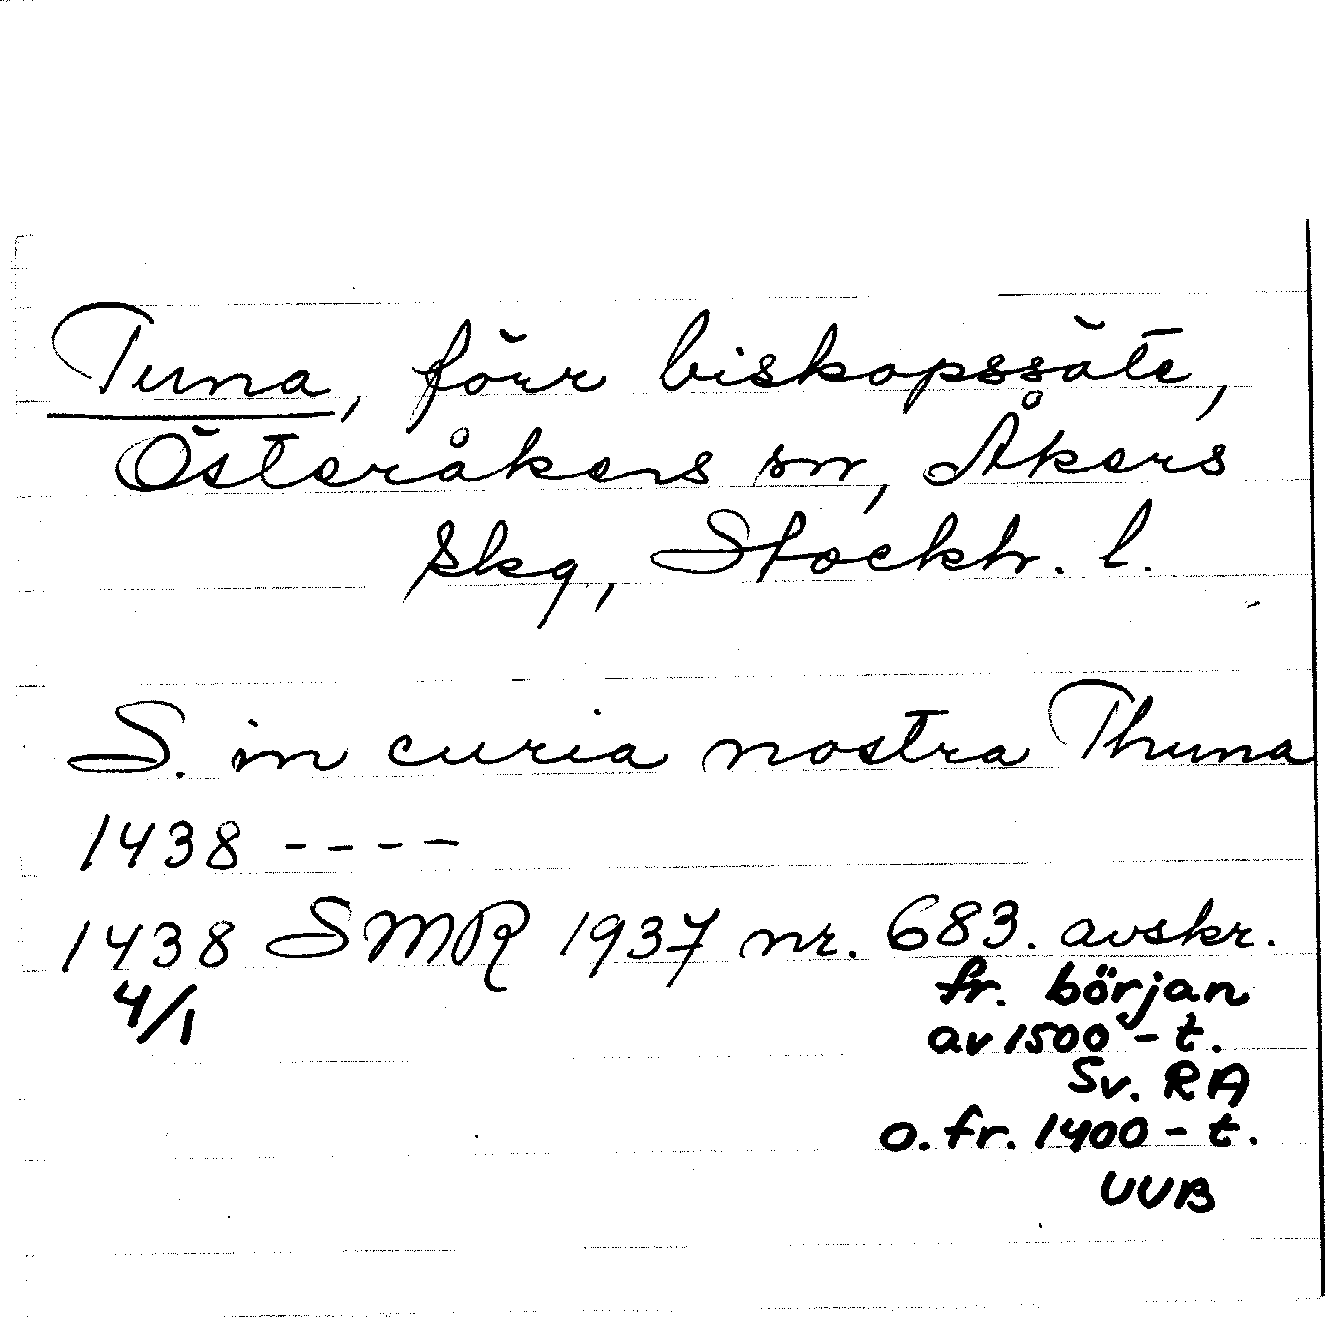 Tuna, förr biskopssäte,
Österåkers sn, Åkers
skg, Stockh. l.
S. in curia nostra Thuna
1438 ----
1438 SMR 1937 nr. 683. avskr.
4/1 fr. början
av 1500-t.
Sv. RA
o. fr. 1400-t.
UUB